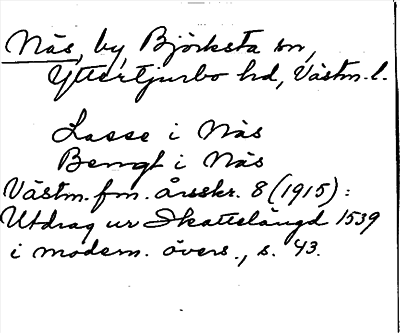 Näs, by, Björksta sn,
Yttertjurbo hd, Västm. l.
Lasse i Näs
Bengt i Näs
Västm. fm. årsskr. 8 (1915):
Utdrag ur Skattelängd 1539
i modern. övers., s. 43.